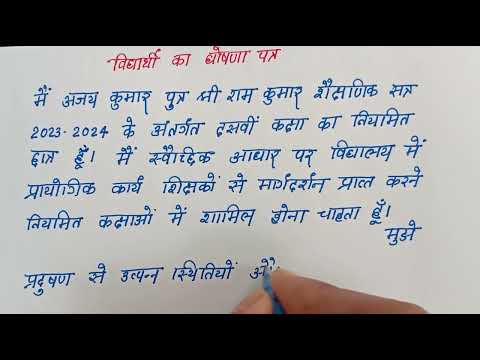 विद्यार्थी का घोषणा पत्र
मैं अजय कुमार पुत्र श्री राम कुमार शैक्षणिक सत्र
2023-2024 के अंतर्गत दसवीं कक्षा का नियमित
छात्र हूँ। मैं स्वैच्छिक आधार पर विद्यालय में
प्रायोगिक कार्य शिक्षकों से मार्गदर्शन प्राप्त करने
नियमित कक्षाओं में शामिल होना चाहता हूँ।
मुझे
प्रदुषण से उत्पन्न स्थितियों औ